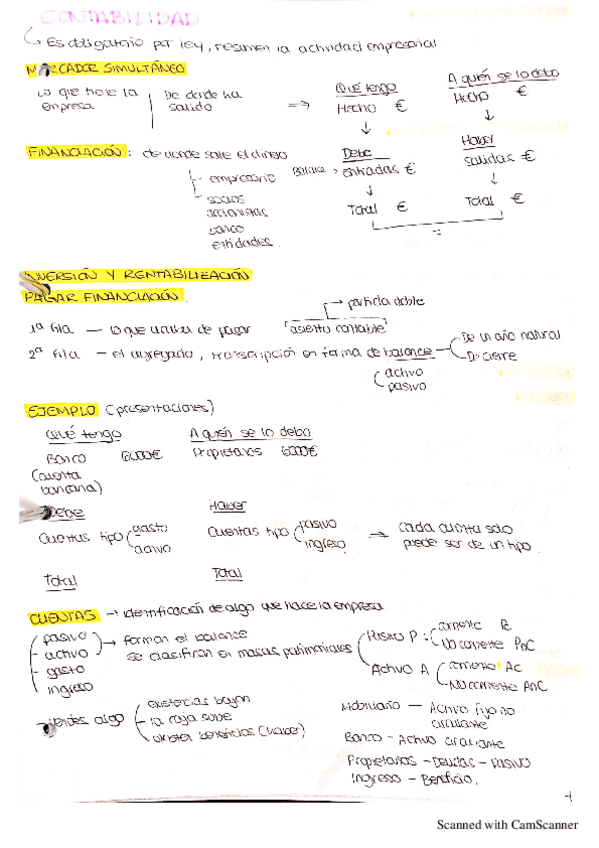 CONTABILIDAD
Es obligatorio por ley, resumen la actividad empresarial
MARCADOR SIMULTÁNEO
Lo que tiene la empresa
De donde ha salido
⇒
Qué tengo
Hecho €
A quién se lo debo
Hecho €
FINANCIACIÓN: de donde sale el dinero
empresario
socios
accionistas
banco
entidades
Balance → Debe
entradas €
Total €
Haber
salidas €
Total €
=
INVERSIÓN Y RENTABILIZACIÓN
PAGAR FINANCIACIÓN
1ª fila — lo que de pagar "asiento contable" → partida doble
2ª fila — el agregado, transcripción en forma de balance
De un año natural
De cierre
activo
pasivo
EJEMPLO (presentaciones)
Qué tengo
A quién se lo debo
Banco 6000€
Propietarios 6000€
(cuenta
bancaria)
Debe
Haber
Cuentas tipo gasto
activo
Cuentas tipo pasivo
ingreso
→ cada cuenta solo
puede ser de un tipo
Total
Total
CUENTAS → identificación de algo que hace la empresa
pasivo
activo
gasto
ingreso
→ forman el balance
se clasifican en masas patrimoniales
Pasivo P: corriente Pc
No corriente PnC
Activo A corriente Ac
No corriente AnC
vendes algo
existencias bajan
la caja sube
beneficios (haber)
Mobiliario — Activo fijo no
circulante
Banco – Activo circulante
Propietarios – Deudas – Pasivo
Ingreso – Beneficio.
-1
Scanned with CamScanner